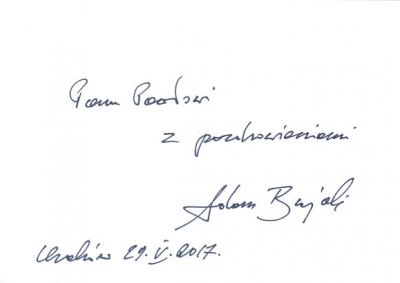 Panu Pawłowi
z pozdrowieniami
Adam Bujak
Kraków 29.V.2017.